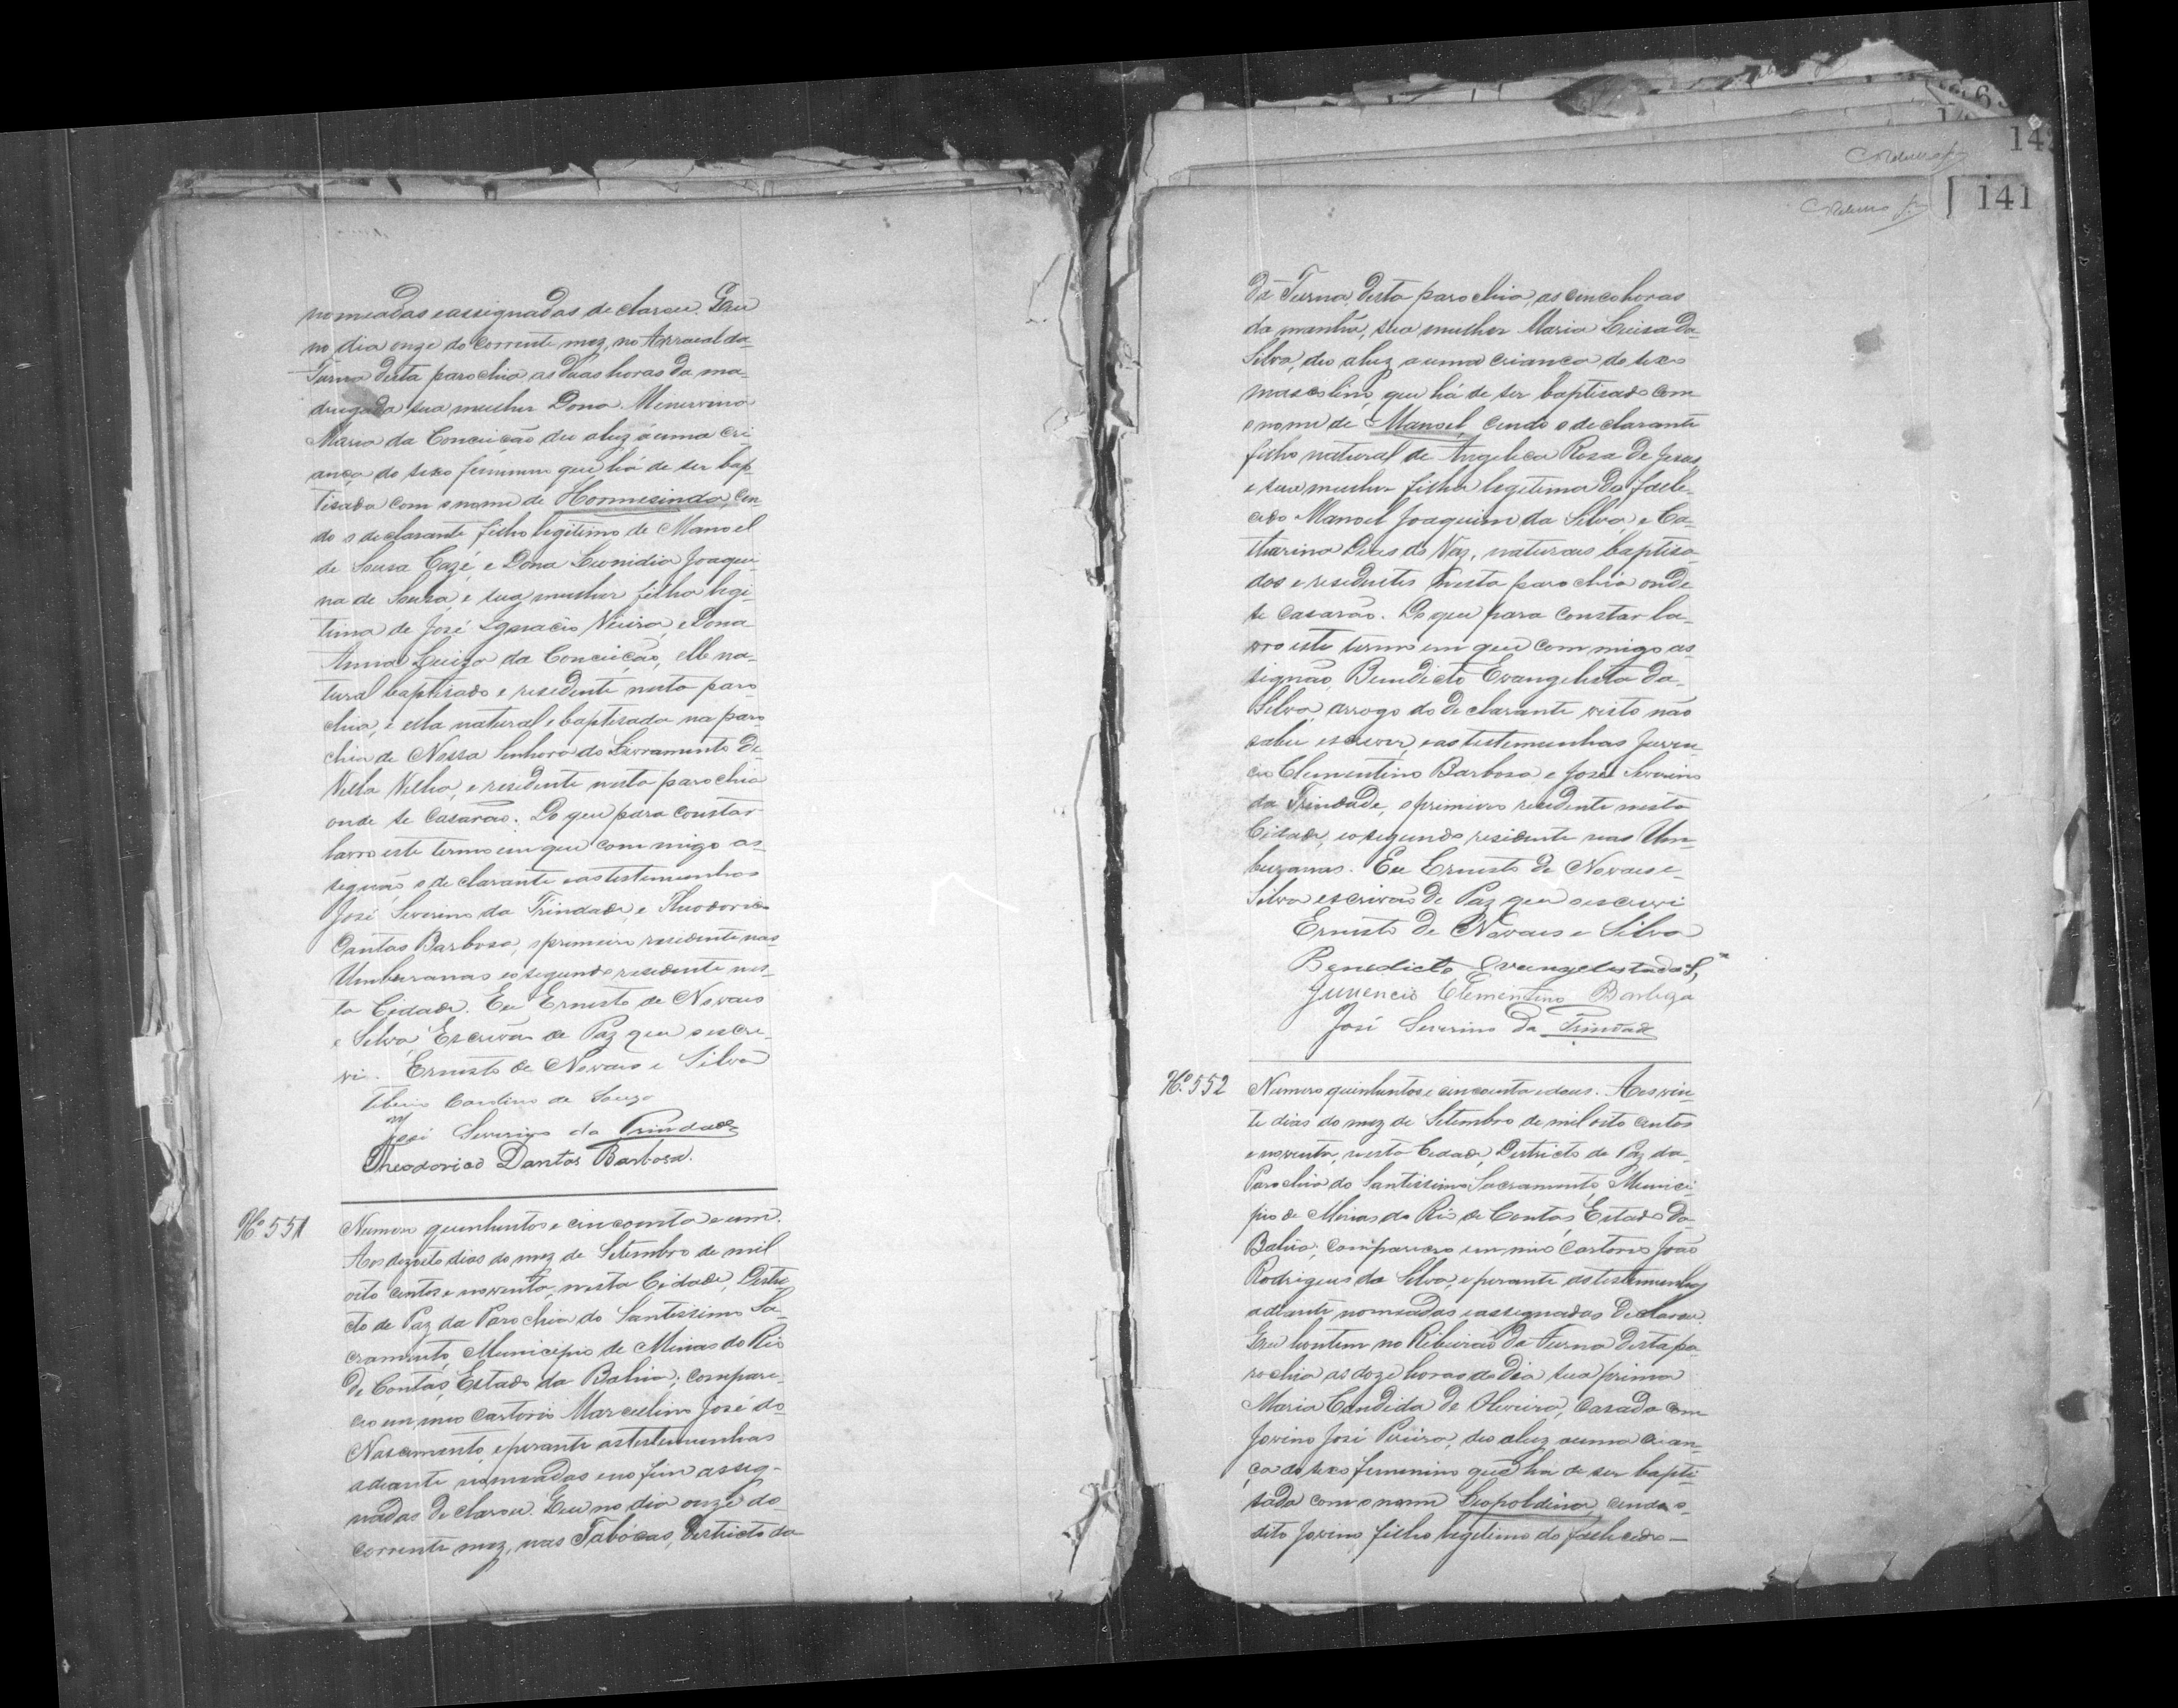 nomeadas eassignadas declarou. Que
no dia onze do corrente mez, no Arraial da
Furna desta parochia as duas horas da ma-
drugada sua mulher Dona Minervina
Maria da Conceição deu aluz á uma cri-
ança do sexo feminino que há de ser bap-
tisada com o nome de Hormesinda, cen-
do o declarante filho legitimo de Manoel
de Sousa Cazé, e Dona Leonidia Joaqui-
na de Sousa, e sua mulher filha legi-
tima de José Ignacio Vieira, e Dona
Anna Luiza da Conceição, elle na-
tural baptisado e residente nesta paro
chia, e ella natural e baptisada na paro
chia de Nossa Senhora do Livramento de
Villa Velha, e residente nesta parochia
onde se casarão. Do que para constar
lavro este termo em que com migo as-
signão o declarante eas testemunhas
José Severino da Trindade e Theodorico
Dantas Barbosa, o primeiro residente nas
Umburanas eo segundo residente nes-
ta Cidade. Eu Ernesto de Novaes
e Silva, Escrivão de Paz que o escre-
vi. Ernesto de Novaes e Silva
Tiberio Candino de Souza
José Severino da Trindade
Theodorico Dantas Barbosa.
Nº 551 Numero quinhentos e cincoenta e um.
Aos dezoito dias do mez de Setembro de mil
oito centos e noventa, nesta Cidade, Distri
cto de Paz da Parochia do Santissimo Sa-
cramento, Municipio de Minas do Rio
de Contas, Estado da Bahia; compare-
ceo em meo Cartorio Marcellino José do
Nascimento, e perante as testemunhas
adiante nomeadas eno fim assig-
nadas declarou. Que no dia onze do
corrente mez, nas Tabócas, Districto da
141
da Furna, desta parochia, as cinco horas
da manhã, sua mulher Maria Luisa da
Silva, deo aluz a uma crianca do sexo
mascolino, que há de ser baptisado com
o nome de Manoel, cendo o declarante
filho natural de Angelica Rosa de Jesus,
e sua mulher filha legetima do falle-
cido Manoel Joaquim da Silva, e Ca-
tharina Dias de Vaz, naturaes baptisa-
dos e residentes nesta parochia onde
se casarão. Do que para constar la-
vro este termo em que com migo as-
signão Benedicto Evangelista da
Silva, arrogo do declarante visto não
saber escrever, eas testemunhas Juven-
cio Clementino Barbosa e José Severino
da Trindade, o primeiro residente nesta
Cidade, eo segundo residente nas Um-
buranas. Eu Ernesto de Novaes e
Silva escrivão de Paz que o escrevi
Ernesto de Novaes e Silva
Benedicto Evangelista da Sª
Juvencio Clementino Barboza
José Severino da Trindade
Nº 552 Numero quinhentos e cincoenta e dous. Aos vin-
te dias do mez de Setembro de mil oito centos
e noventa, nesta Cidade, Districto de Paz da
Parochia do Santissimo Sacramento, Munici-
pio de Minas do Rio de Contas, Estado da
Bahia; compareceo em meo Cartorio João
Rodrigues da Silva, e perante as testemunhas
adiante nomeadas eassignadas declarou.
Que hontem no Ribeirão da Furna desta pa-
rochia as doze horas do dia sua prima
Maria Candida de Oliveira, casada com
Jovino José Pereira, deo aluz auma crian-
ça do sexo femenino que ha de ser bapti
sada com o nome Leopoldina, cendo o
dito Jovino filho legitimo do fallecido